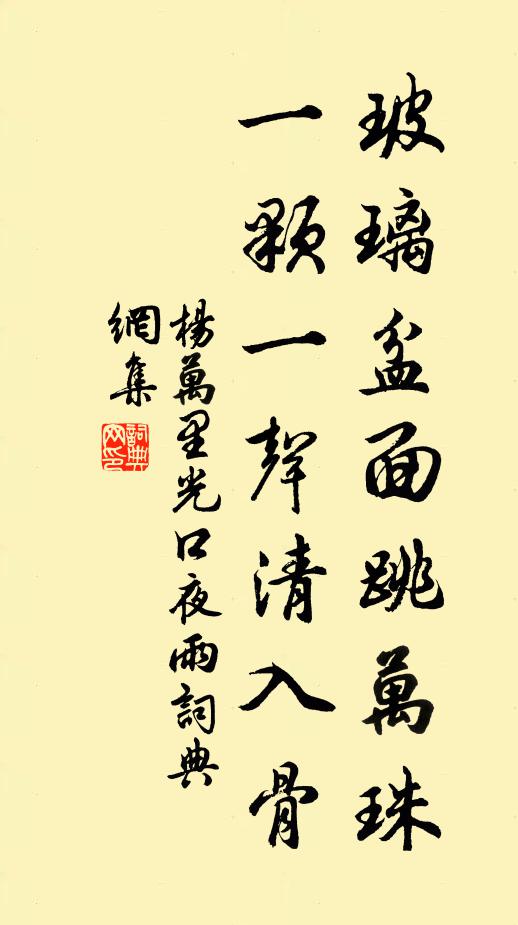 玻璃盆面跳萬珠
一顆一聲清入骨
楊萬里光口夜雨詞典
網集
詞典網印